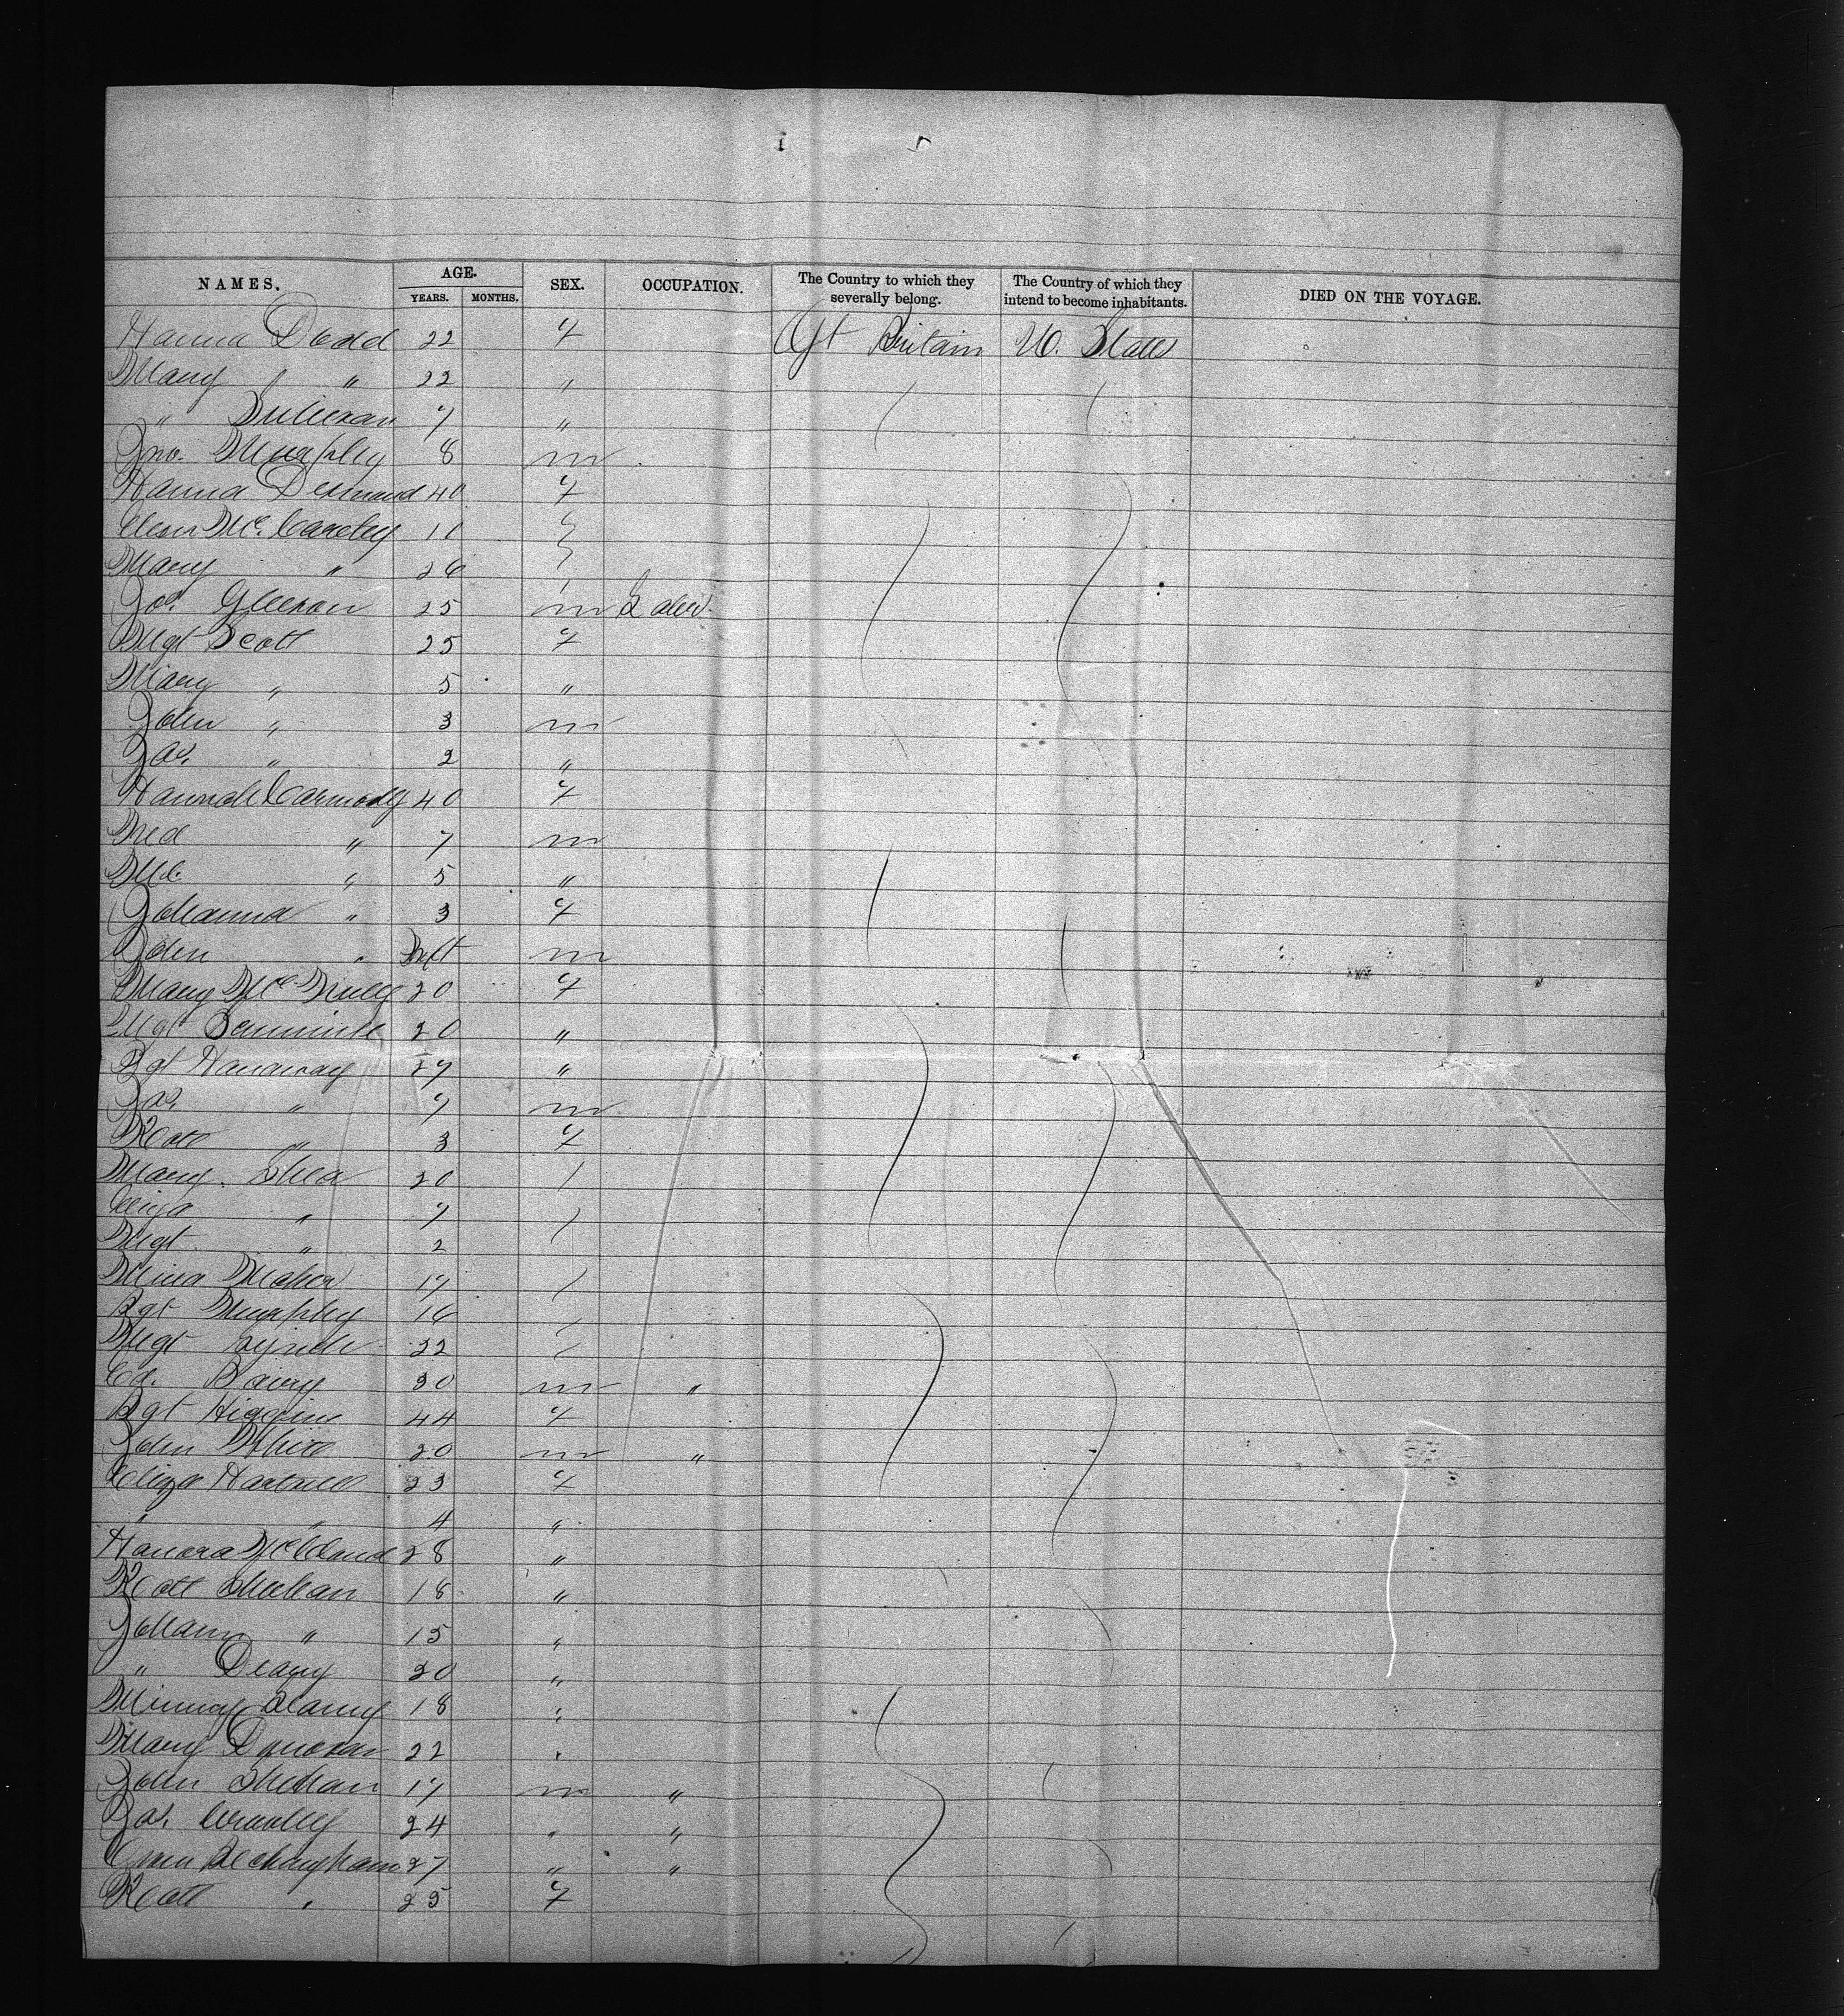 NAMES. AGE. SEX. OCCUPATION. The Country to which they severally belong. The Country of which they intend to become inhabitants. DIED ON THE VOYAGE.
YEARS. MONTHS.
Hanna Dodd 22 f Gt Britain U. States
Mary " 22 "
" Sullivan 7 "
Jno. Murphy 8 m
Hanna Desmond 40 f
Ellen McCarthy 11
Mary " 26
Jas. Gleeson 25 m Labr.
Mgt Scott 25 f
Mary " 5 "
John " 3 m
Jas. " 2 "
Hannah Carmody 40 f
Thed " 7 m
Ml. " 5 "
Johanna " 3 f
John " Inft m
Mary 20 f
Mgt 20 "
Bgt Hanaway 29 "
Jas. " 7 m
Kate " 3 f
Mary Shea 20
Eliza " 7
Mgt " 2
Mina Maher 17
Bgt Murphy 16
Mgt Lynch 22
Ed. Barry 30 m "
Bgt Higgins 44 f
John White 20 m "
Eliza Hartnett 23 f
" " 4 "
Hanora 28 "
Kate Sheehan 18 "
Johann " 15 "
" Deasy 20 "
Minny 18 "
Mary Donovan 22 "
John Sheehan 17 m "
Jas. Crowley 24 " "
Owen Buckingham 27 " "
Kate " 25 f